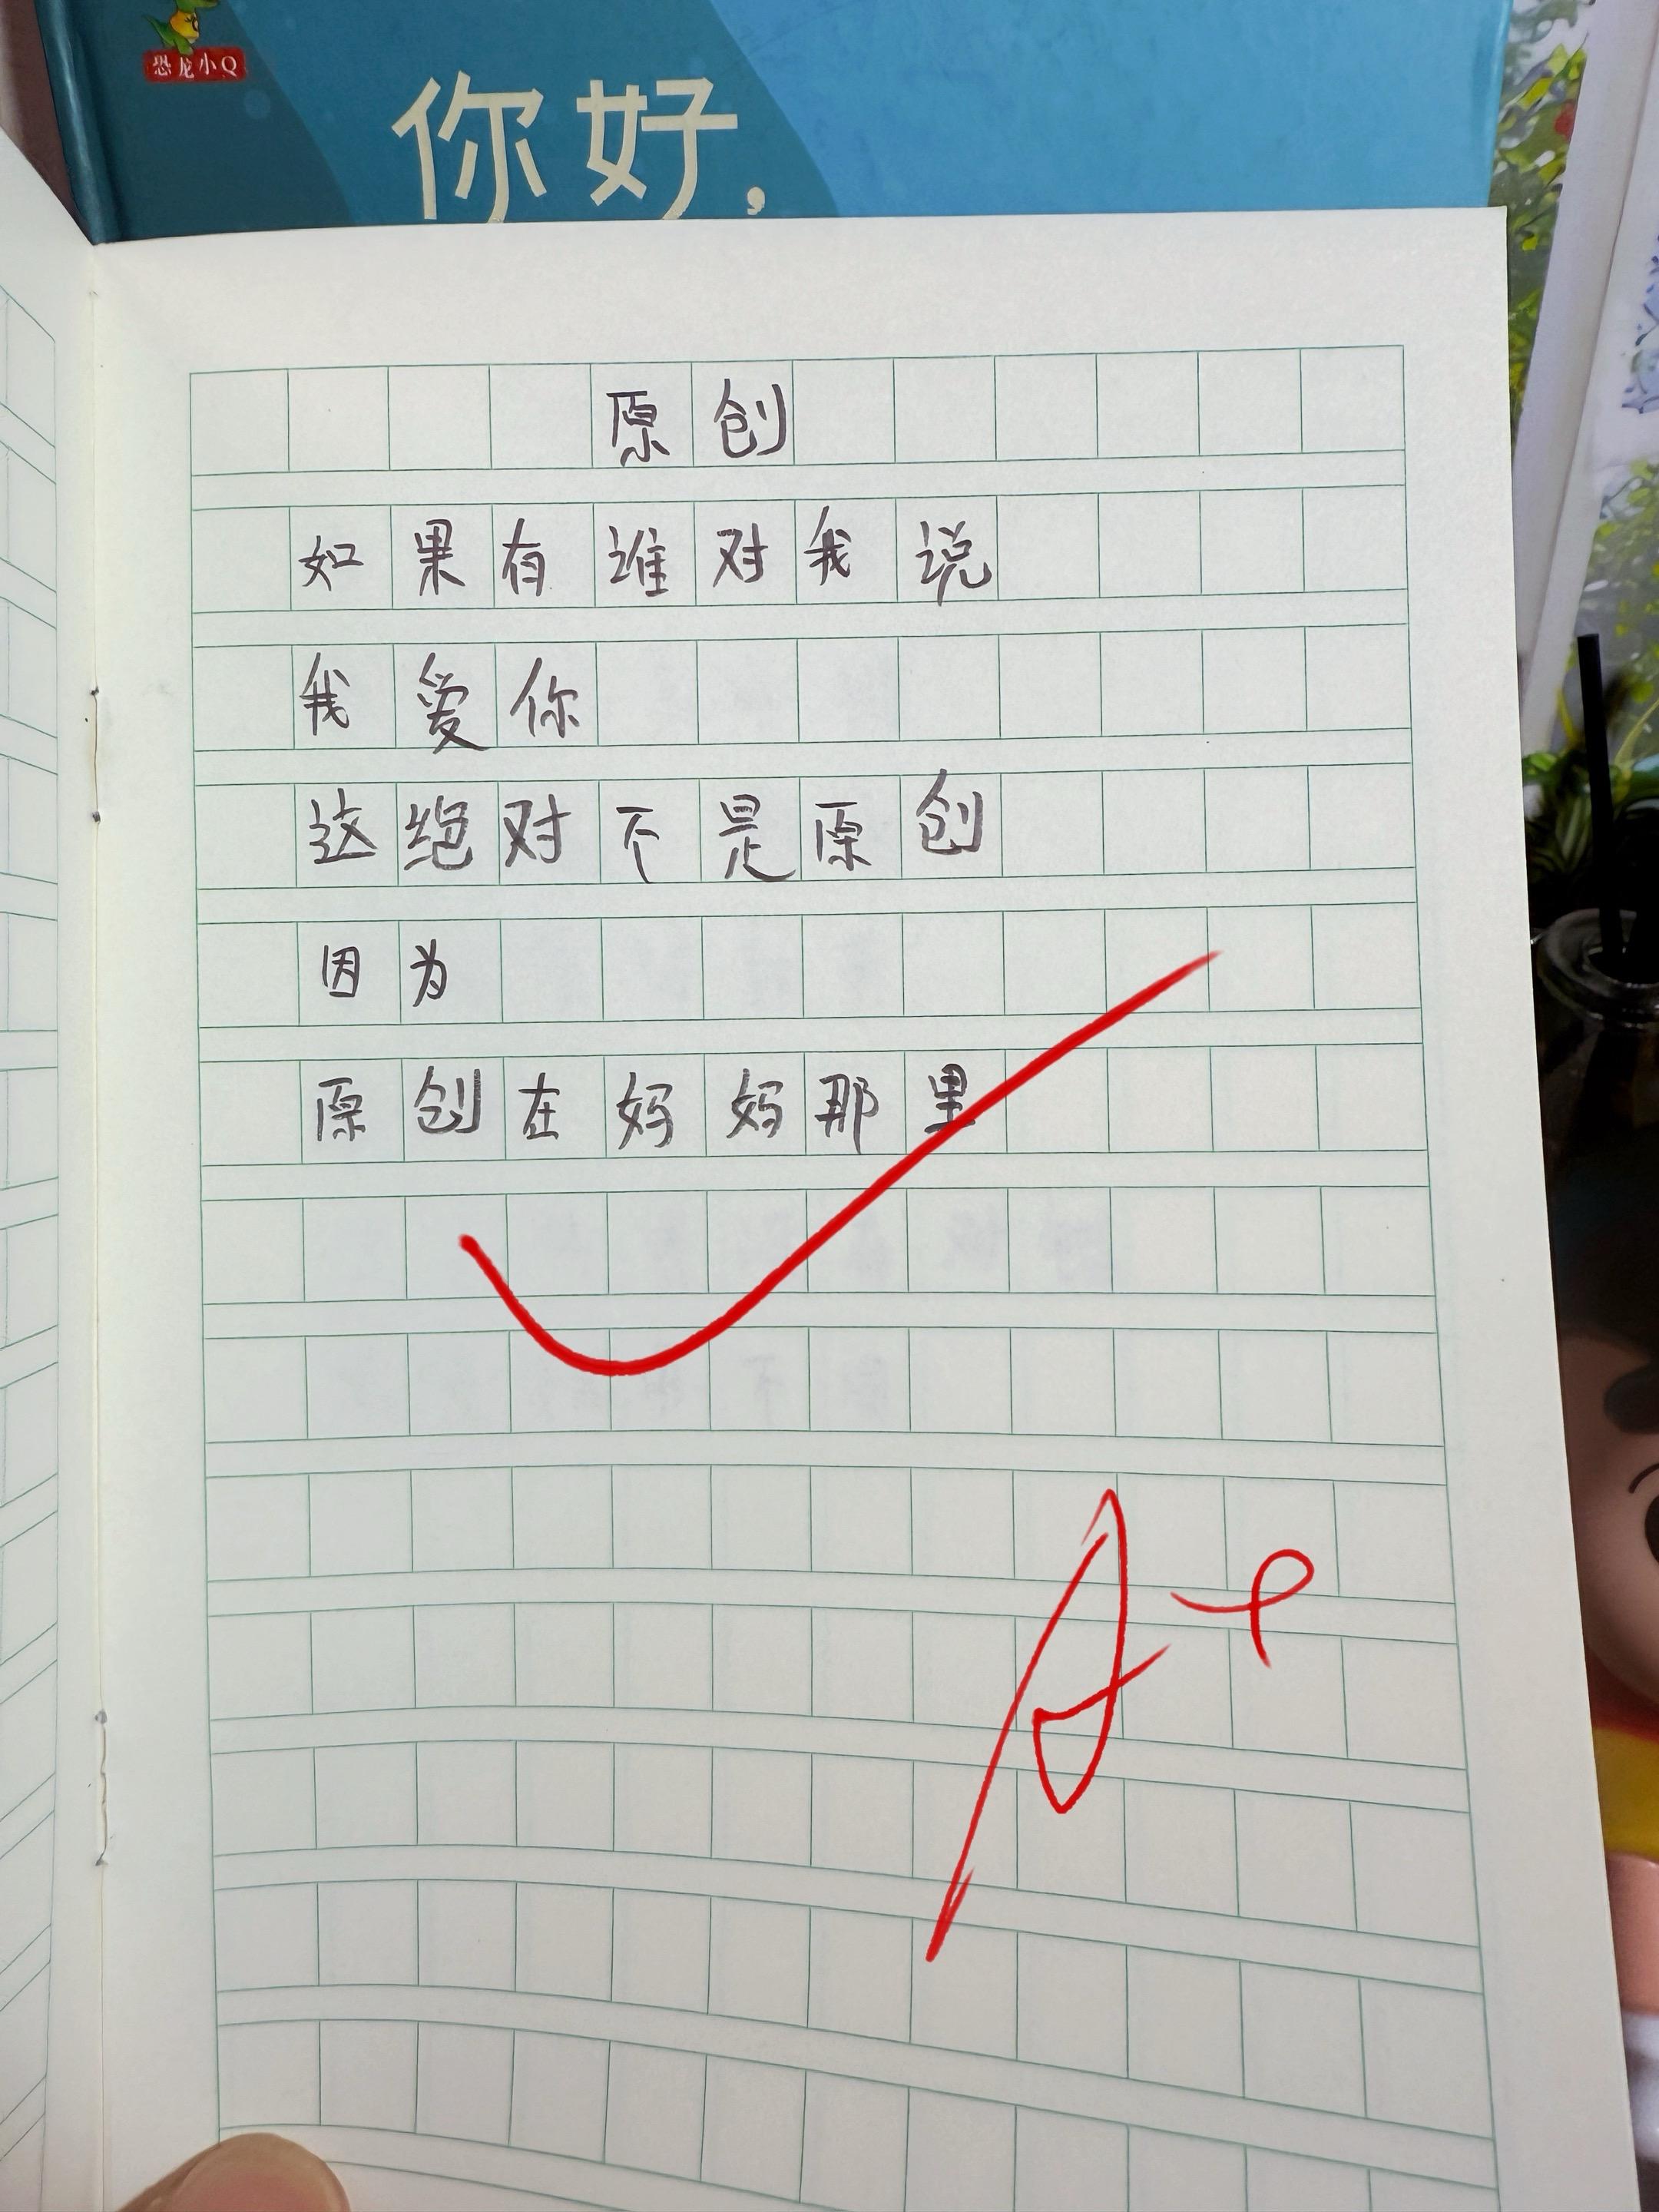 恐龙小Q
你好，
原创
如果有谁对我说
我爱你
这绝对不是原创
因为
原创在妈妈那里
A+